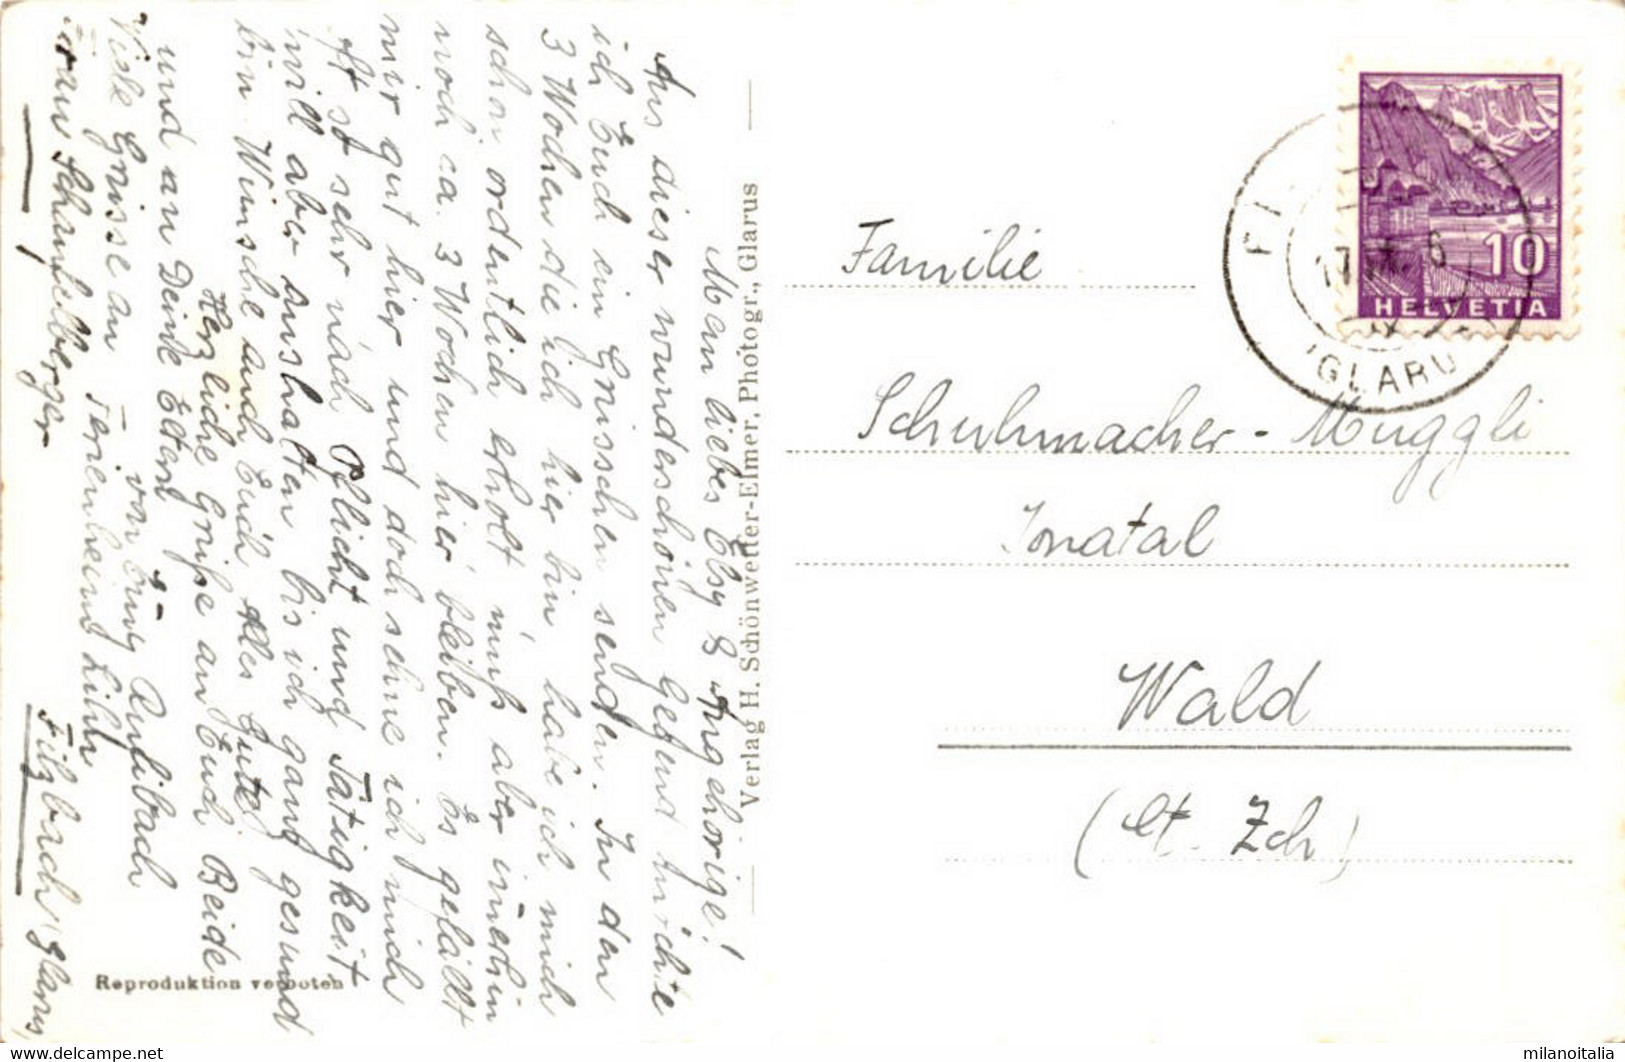 Mein liebes Elsy & Angehörige!
Aus dieser wunderschönen Gegend möchte
ich Euch ein Grüsschen senden. In den
3 Wochen die ich hier bin, habe ich mich
schon ordentlich erholt muß aber immerhin
noch ca. 3 Wochen hier bleiben. Es gefällt
mir gut hier und doch sehne ich mich
oft so sehr nach Pflicht und Tätigkeit,
will aber aushalten bis ich ganz gesund
bin. Wünsche auch Euch alles Gute
Herzliche Grüße an Euch Beide
und an Deine Eltern
von Eurer
Viele Grüsse an
Ferienheim Lihn
Frau Schaufelberger
Filzbach (Glarus)
Reproduktion verboten
Verlag H. Schönwetter-Elmer, Photogr., Glarus
Familie
Schuhmacher-Muggli
Jonatal
Wald
(Kt. Zch)
10
HELVETIA
(GLARU